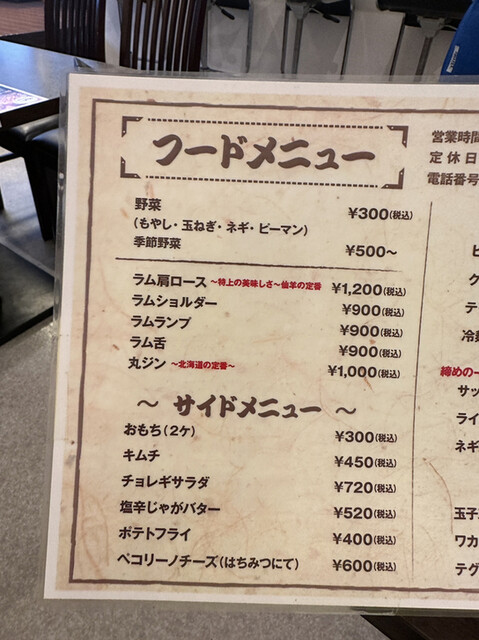 フードメニュー
野菜 ¥300(税込)
(もやし・玉ねぎ・ネギ・ピーマン)
季節野菜 ¥500〜
ラム肩ロース 〜特上の美味しさ〜仙羊の定番 ¥1,200(税込)
ラムショルダー ¥900(税込)
ラムランプ ¥900(税込)
ラム舌 ¥900(税込)
丸ジン 〜北海道の定番〜 ¥1,000(税込)
〜 サイドメニュー 〜
おもち(2ケ) ¥300(税込)
キムチ ¥450(税込)
チョレギサラダ ¥720(税込)
塩辛じゃがバター ¥520(税込)
ポテトフライ ¥400(税込)
ペコリーノチーズ(はちみつにて) ¥600(税込)
営業時間
定休日
電話番号
ビ
ク
テ
冷麺
締めの一
サッ
ライ
ネギ
玉子
ワカ
テグ